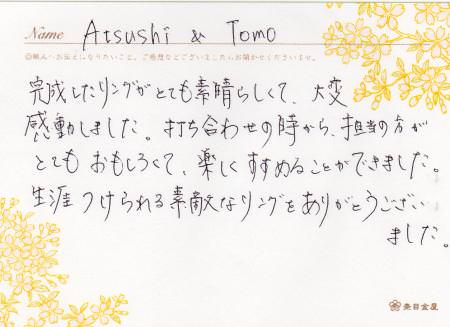 Name Atsushi & Tomo
◎職人へお伝えになりたいこと。ご感想などございましたらお聞かせくださいませ。
完成したリングがとても素晴らしくて、大変
感動しました。打ち合わせの時から、担当の方が
とてもおもしろくて、楽しくすすめることができました。
生涯つけられる素敵なリングをありがとうござい
ました。
杢目金屋